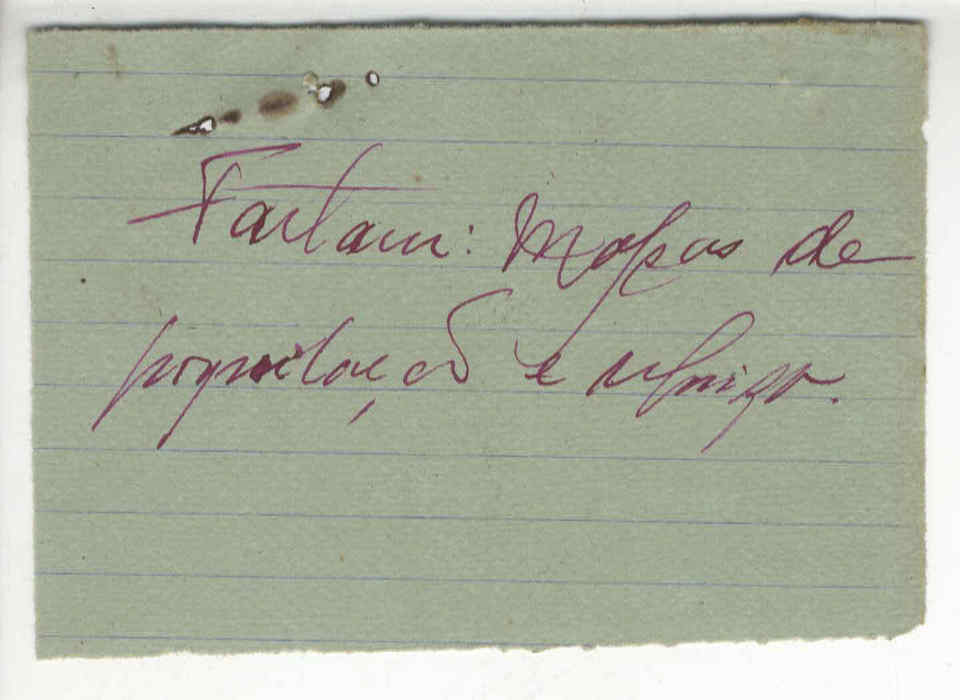 Faltam: Mapas de
população e